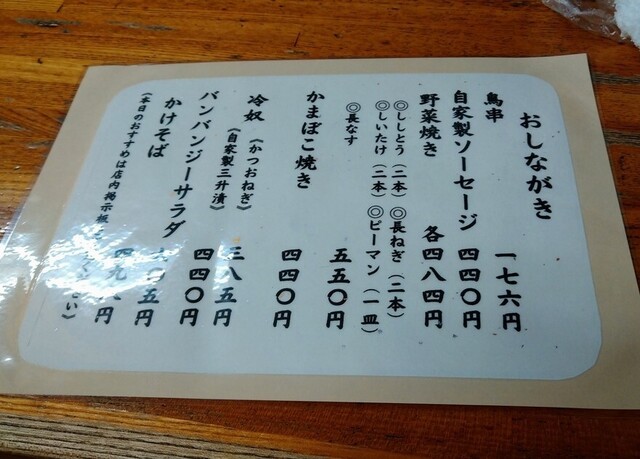 おしながき
鳥串 一七六円
自家製ソーセージ 四四〇円
野菜焼き 各四八四円
◎ししとう(二本)◎長ねぎ(二本)
◎しいたけ(二本)◎ピーマン(一皿)
◎長なす 五五〇円
かまぼこ焼き 四四〇円
冷奴(かつおねぎ) 三八五円
(自家製三升漬) 四四〇円
バンバンジーサラダ 〇五円
かけそば 四九円
(本日のおすすめは店内掲示板 ください)